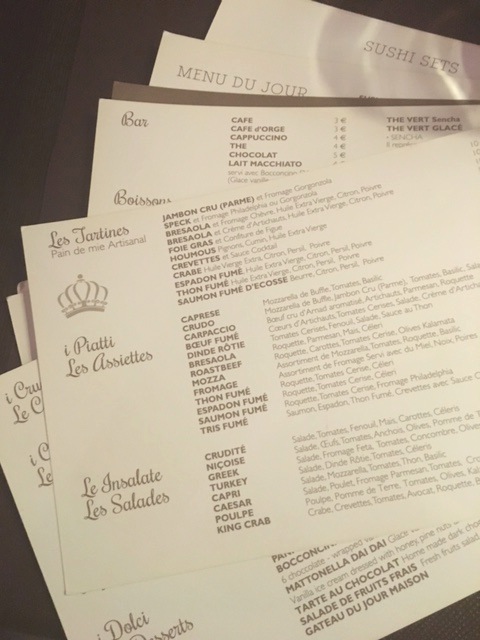 SUSHI SETS
MENU DU JOUR
Bar
CAFE 3 €
CAFE d'ORGE 3 €
CAPPUCCINO 4 €
THE 4 €
CHOCOLAT 5 €
LAIT MACCHIATO
servi avec Bocconcino
(Glace vanille
THE VERT Sencha
THE VERT GLACÉ
• SENCHA
Boissons
Les Tartines
Pain de mie Artisanal
JAMBON CRU (PARME) et Fromage Gorgonzola
SPECK et Fromage Philadelphia ou Gorgonzola
BRESAOLA et Fromage Chèvre, Huile Extra Vierge, Citron, Poivre
BRESAOLA et Crème d'Artichauts, Huile Extra Vierge, Citron, Poivre
FOIE GRAS et Confiture de Figue
HOUMOUS Pignons, Cumin, Huile Extra Vierge
CREVETTES et Sauce Cocktail
CRABE Huile Vierge Extra, Citron, Persil, Poivre
ESPADON FUMÉ Huile Extra Vierge, Citron, Poivre
THON FUMÉ Huile Extra Vierge, Citron, Persil, Poivre
SAUMON FUMÉ D'ECOSSE Beurre, Citron, Persil, Poivre
i Piatti
Les Assiettes
CAPRESE Mozzarella de Buffle, Tomates, Basilic
CRUDO Mozzarella de Buffle, Jambon Cru (Parme), Tomates, Basilic, Sala
CARPACCIO Bœuf cru d'Arnad aromatisé, Artichauts, Parmesan, Roquette
BŒUF FUMÉ Cœurs d'Artichauts, Tomates Cerises, Salade, Crème d'Artich
DINDE RÔTIE Tomates Cerises, Fenouil, Salade, Sauce au Thon
BRESAOLA Roquette, Parmesan, Maïs, Céleri
ROASTBEEF Roquette, Carottes, Tomates Cerise, Olives Kalamata
MOZZA Assortiment de Mozzarella, Tomates, Roquette, Basilic
FROMAGE Assortiment de Fromage Servi avec du Miel, Noix, Poires
THON FUMÉ Roquette, Tomates Cerise, Céleri
ESPADON FUMÉ Roquette, Tomates Cerise, Céleri
SAUMON FUMÉ Roquette, Tomates Cerise, Fromage Philadelphia
TRIS FUMÉ Saumon, Espadon, Thon Fumé, Crevettes avec Sauce C
Le Insalate
Les Salades
CRUDITÉ Salade, Tomates, Fenouil, Mais, Carottes, Céleris
NIÇOISE Salade, Œufs, Tomates, Anchois, Olives, Pomme de T
GREEK Salade, Fromage Feta, Tomates, Concombre, Olives
TURKEY Salade, Dinde Rôtie, Tomates, Céleris
CAPRI Salade, Mozzarella, Tomates, Thon, Basilic
CAESAR Salade, Poulet, Fromage Parmesan, Tomates, Cro
POULPE Poulpe, Pomme de Terre, Tomates, Olives, Kala
KING CRAB Crabe, Crevettes, Tomates, Avocat, Roquette, B
i Cru
Le C
i C
Le
i Dolci
Desserts
BOCCONCIN
6 chocolate - wrapped
MATTONELLA DAI DAI Glace
Vanilla ice cream dressed with honey, pine nuts
TARTE AU CHOCOLAT Home made dark cho
SALADE DE FRUITS FRAIS Fresh fruits salad
GATEAU DU JOUR MAISON